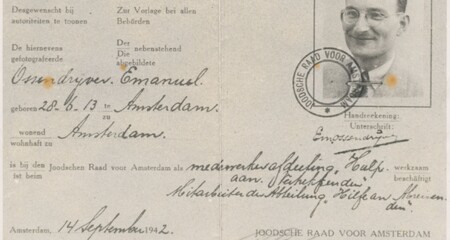 Desgewenscht bij Zur Vorlage bei allen
autoriteiten te toonen Behörden
De hiernevens Der Die nebenstehend
gefotografeerde abgebildete
Ossendrijver Emanuel.
geboren 28.6.13 te Amsterdam.
zu
wonend
wohnhaft zu Amsterdam.
JOODSCHE RAAD VOOR AMSTERDAM
Handteekening:
Unterschrift:
EmOssendrijver
is bij den Joodschen Raad voor Amsterdam als medewerker afdeeling Hulp werkzaam
ist beim aan Vertrekkenden beschäftigt
Mitarbeiter der Abteilung, Hilfe an
Amsterdam, 14 September 1942.
JOODSCHE RAAD VOOR AMSTERDAM